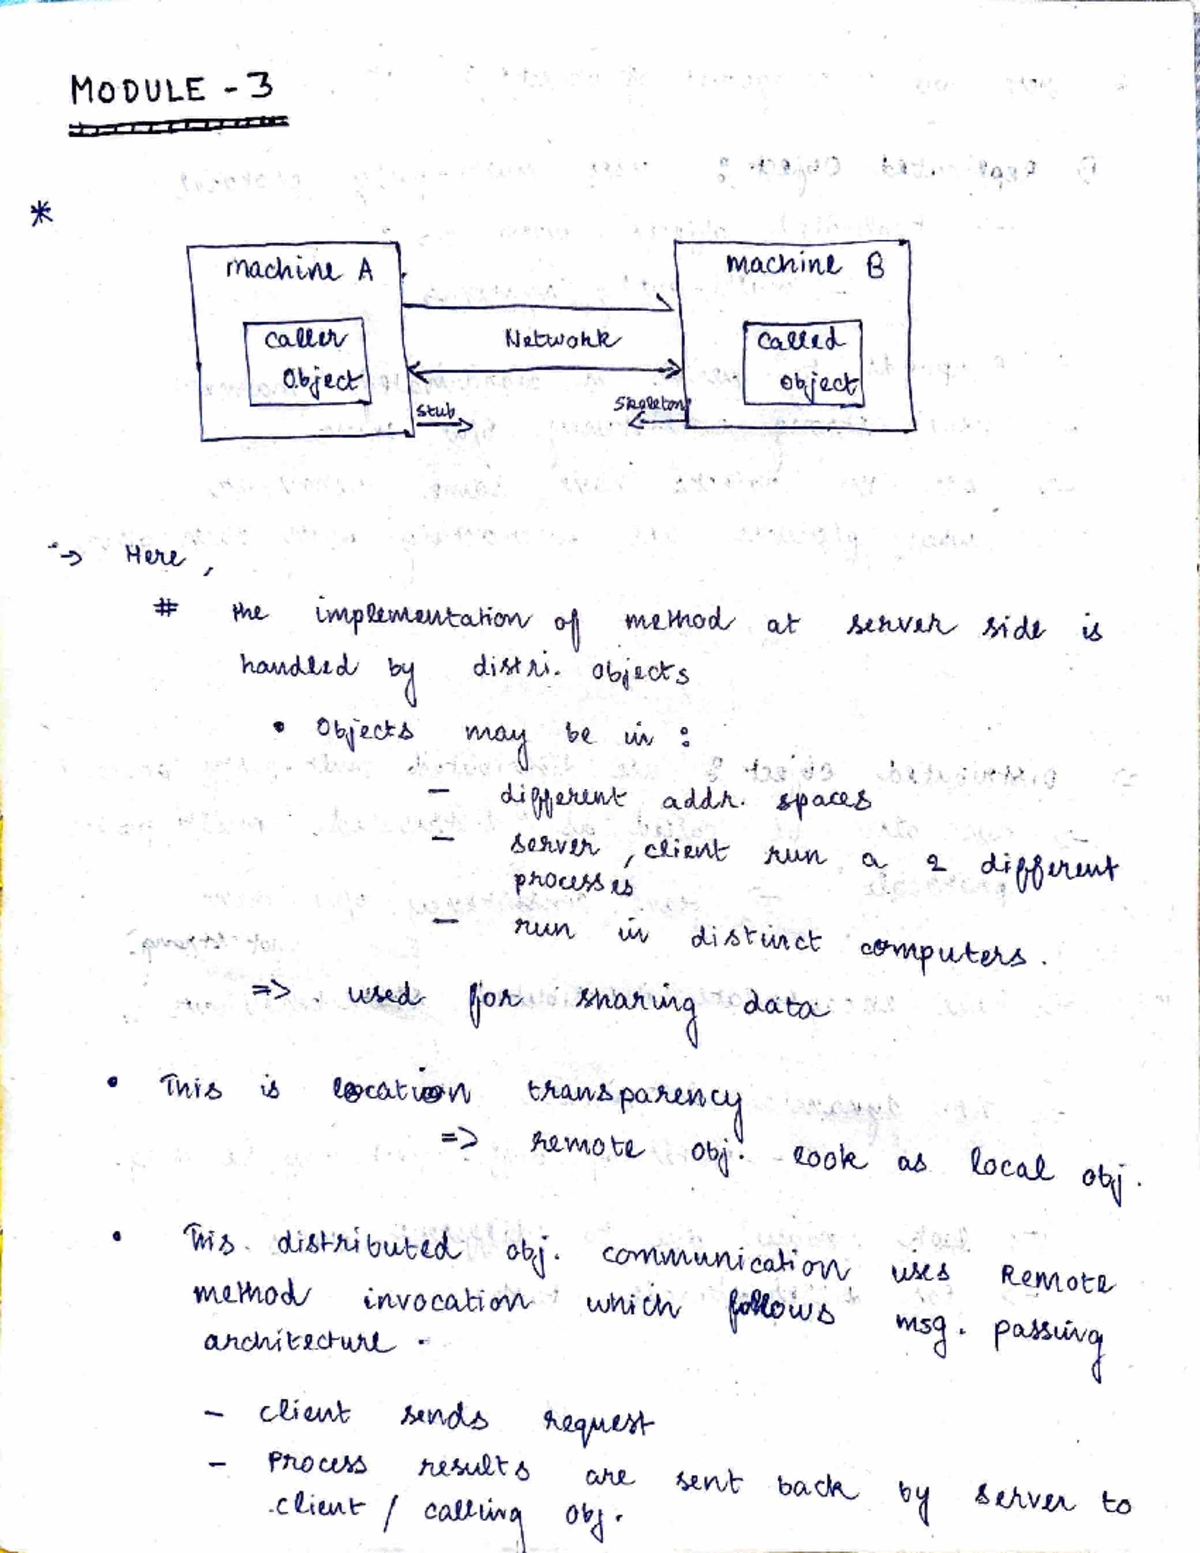 MODULE - 3
*
machine A
machine B
Caller
Object
Network
Called
Object
Stub
Skeleton
→ Here,
# the implementation of method at server side is
handled by distri. objects
• Objects may be in :
— different addr. spaces
— server, client run a 2 different
processes
— run in distinct computers.
=> used for sharing data
• This is location transparency
=> remote obj. look as local obj.
• This distributed obj. communication uses Remote
method invocation which follows msg. passing
architecture.
— client sends request
— Process results are sent back by server to
client / calling obj.